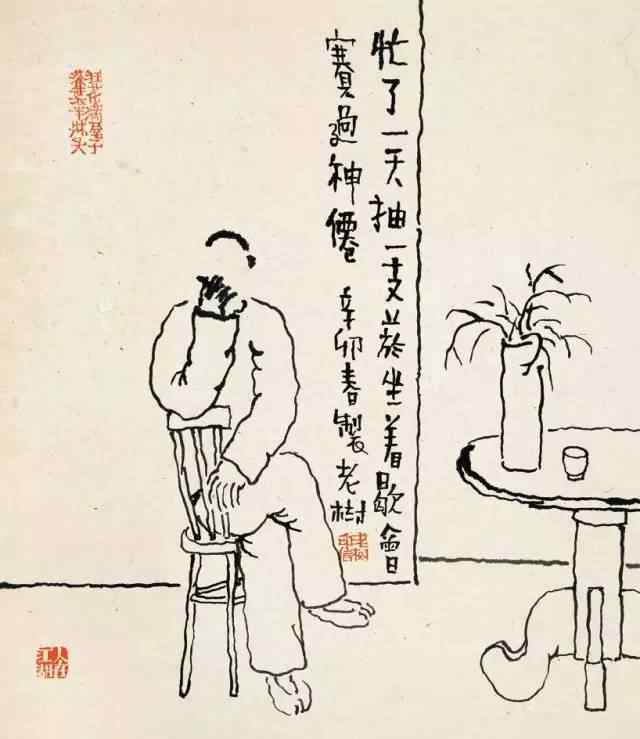 忙了一天抽一支菸坐着歇會
賽過神僊 辛卯春製老樹
人在
江湖